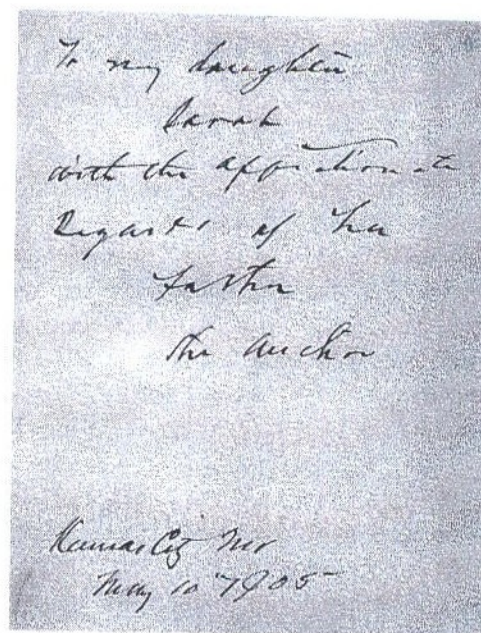 To my daughter
Sarah
with the affectionate
Regards of her
father
the author
Kansas City Mo
May 10 1905